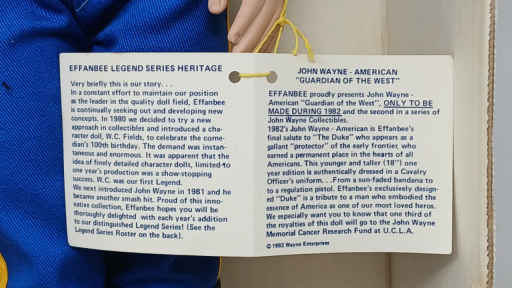 EFFANBEE LEGEND SERIES HERITAGE
Very briefly this is our story. . .
In a constant effort to maintain our position
as the leader in the quality doll field, Effanbee
is continually seeking out and developing new
concepts. In 1980 we decided to try a new
approach in collectibles and introduced a cha-
racter doll, W.C. Fields, to celebrate the come-
dian's 100th birthday. The demand was instan-
taneous and enormous. It was apparent that the
idea of finely detailed character dolls, limited to
one year's production was a show-stopping
success. W.C. was our first Legend.
We next introduced John Wayne in 1981 and he
became another smash hit. Proud of this inno-
vative collection, Effanbee hopes you will be
thoroughly delighted with each year's addition
to our distinguished Legend Series! (See the
Legend Series Roster on the back).
JOHN WAYNE - AMERICAN
"GUARDIAN OF THE WEST"
EFFANBEE proudly presents John Wayne -
American "Guardian of the West", ONLY TO BE
MADE DURING 1982 and the second in a series of
John Wayne Collectibles.
1982's John Wayne - American is Effanbee's
final salute to "The Duke" who appears as a
gallant "protector" of the early frontier, who
earned a permanent place in the hearts of all
Americans. This younger and taller (18") one
year edition is authentically dressed in a Cavalry
Officer's uniform. . .From a sun-faded bandana to
to a regulation pistol. Effanbee's exclusively design-
ed "Duke" is a tribute to a man who embodied the
essence of America as one of our most loved heros.
We especially want you to know that one third of
the royalties of this doll will go to the John Wayne
Memorial Cancer Research Fund at U.C.L.A.
© 1982 Wayne Enterprises